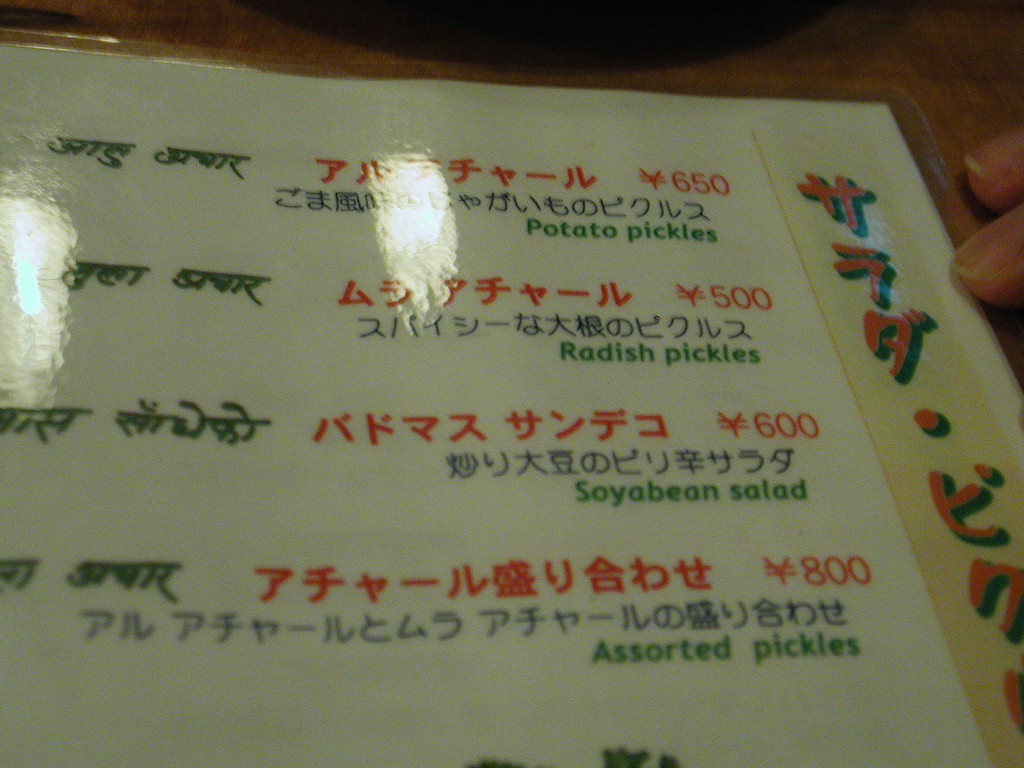 आलु अचार्
アル アチャール ¥650
ごま風味のじゃがいものピクルス
Potato pickles
मुला अचार्
ムラ アチャール ¥500
スパイシーな大根のピクルス
Radish pickles
साँधेको
バドマス サンデコ ¥600
炒り大豆のピリ辛サラダ
Soyabean salad
अचार्
アチャール盛り合わせ ¥800
アル アチャールとムラ アチャールの盛り合わせ
Assorted pickles
サラダ・ピクル